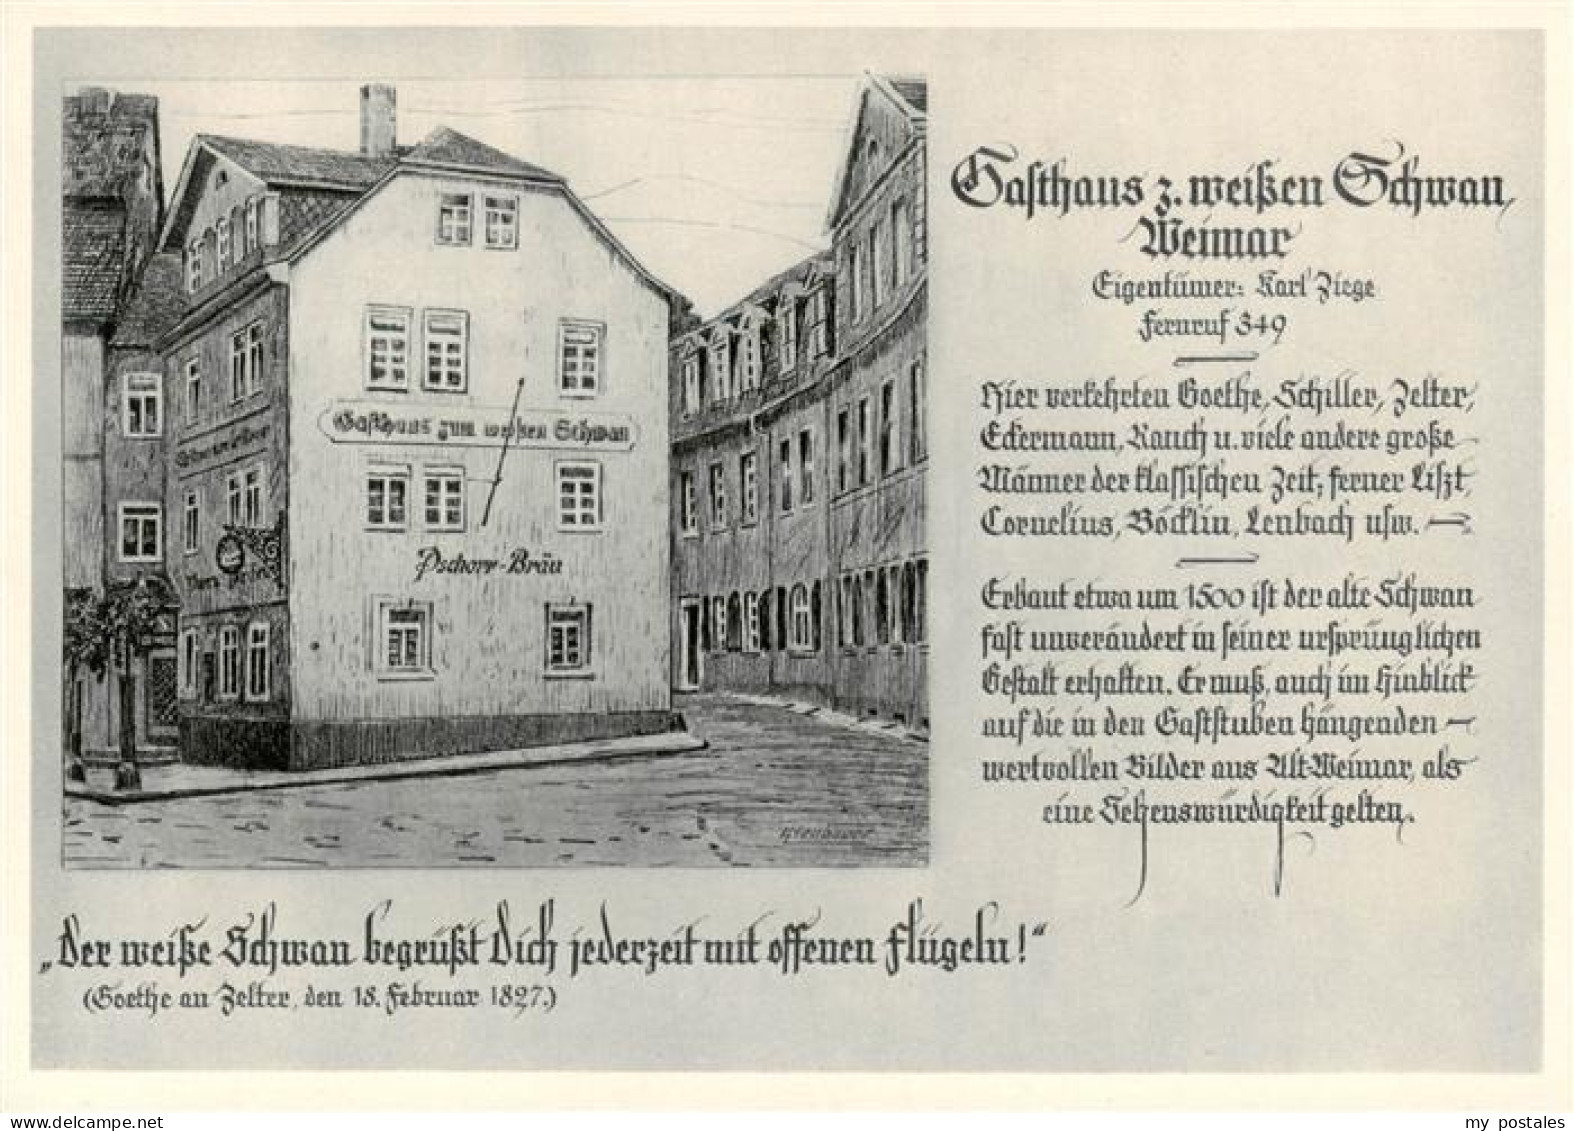 Gasthaus z. weißen Schwan,
Weimar
Eigentümer: Karl Ziege
Fernruf 349
Hier verkehrten Goethe, Schiller, Zelter,
Eckermann, Rauch u. viele andere große
Männer der klassischen Zeit, ferner Liszt,
Cornelius, Böcklin, Lenbach usw. —
Erbaut etwa um 1500 ist der alte Schwan
fast unverändert in seiner ursprünglichen
Gestalt erhalten. Er muß, auch im Hinblick
auf die in den Gaststuben hängenden —
wertvollen Bilder aus Alt-Weimar, als
eine Sehenswürdigkeit gelten.
Gasthaus zum weißen Schwan
Pschorr-Bräu
„Der weiße Schwan begrüßt Dich jederzeit mit offenen Flügeln!“
(Goethe an Zelter, den 18. Februar 1827.)
www.delcampe.net
my postales